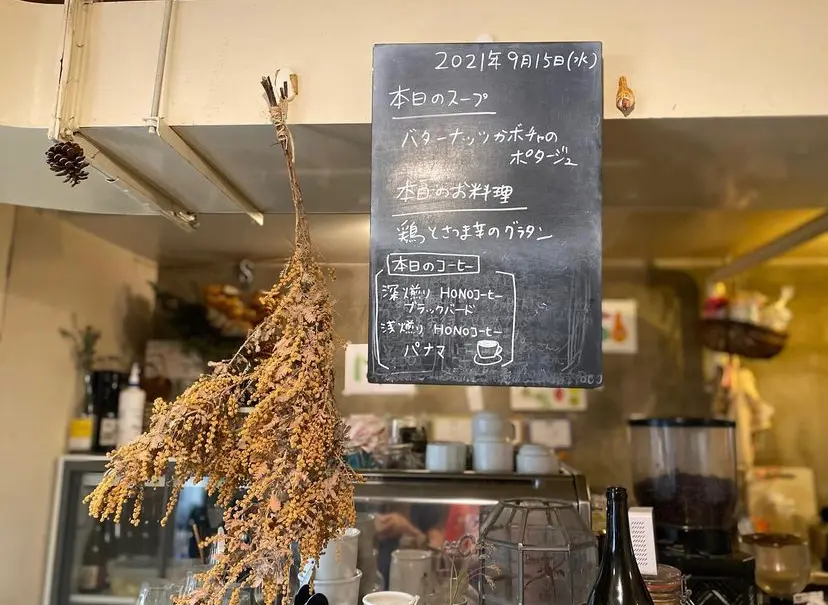 2021年9月15日(水)
本日のスープ
バターナッツカボチャの
ポタージュ
本日のお料理
鶏とさつま芋のグラタン
本日のコーヒー
深煎り HONOコーヒー
ブラックバード
浅煎り HONOコーヒー
パナマ